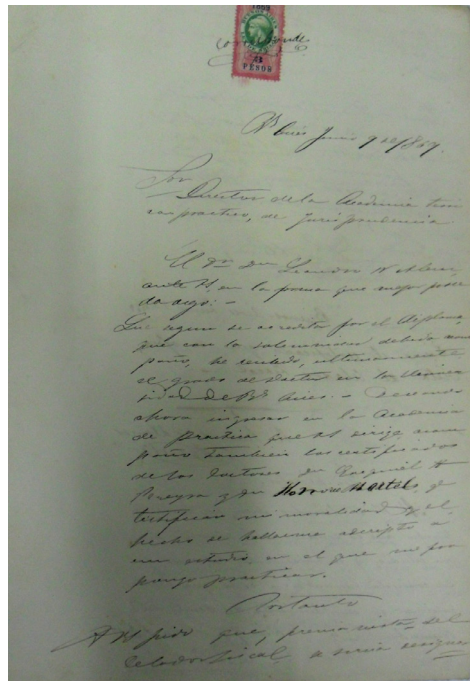 1869
PESOS
Bs Aires Junio 9 de 1869.
Sor
Director de la Academia teori
co practica, de Jurisprudencia
El que
ante V, en la forma que mejor proce
da digo: -
Que segun se acredita por el diploma
que con la solemnidad debida acom
paño, he recibido, ultimamente
el grado de Doctor en la Univer
sidad de Bs Aires. - Deseando
ahora ingresar en la Academia
de practica que V. dirige acom
paño tambien los certificados
de los Doctores Dn Ezequiel A
Pereyra y Dn Honorio Martel
testifican mi moralidad y el
hecho de hallarme adscripto a
un estudio en el que me pro
pongo practicar.
Por tanto
A V. pido que, previa vista del
Celador fiscal se sirva